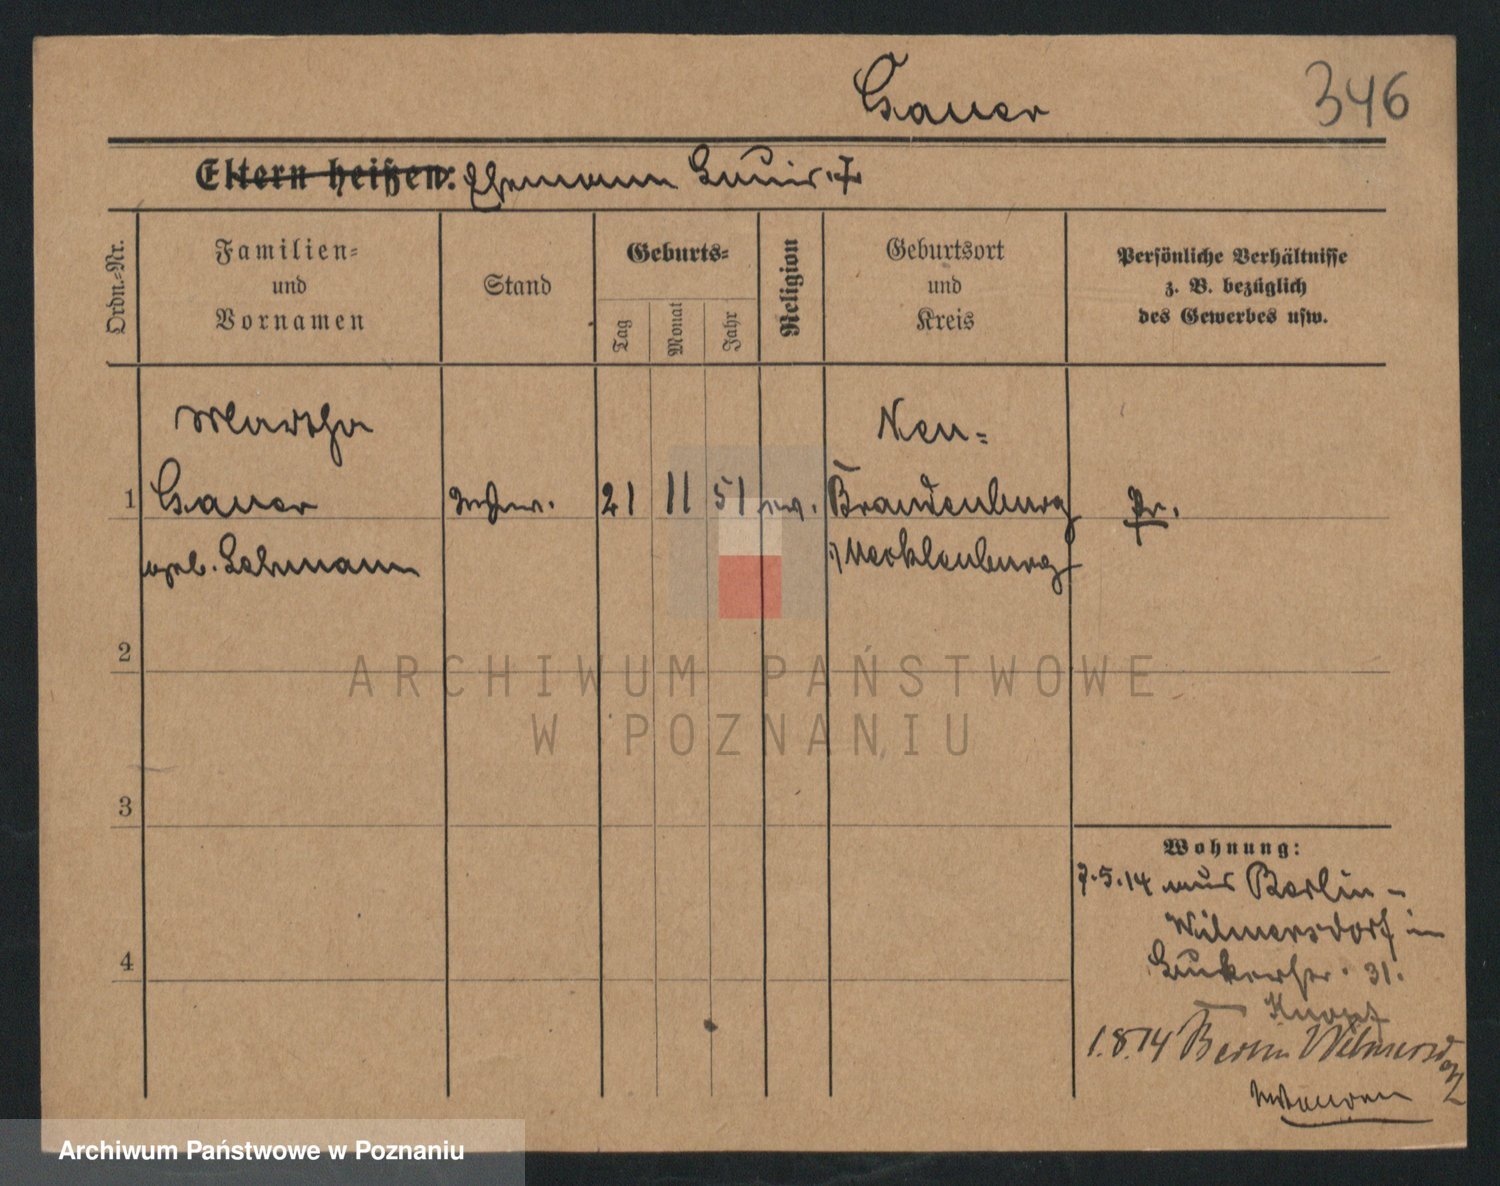 Sauer
346
Eltern heißen: Ehemann Louis. †
Ordn.-Nr.
Familien- und Vornamen
Stand
Geburts-
Tag
Monat
Jahr
Religion
Geburtsort und Kreis
Persönliche Verhältnisse z. B. bezüglich des Gewerbes usw.
Martha
Neu-
1 Sauer
21 11 51 ev. Brandenburg Pr.
geb. Lehmann
i/Mecklenburg
2
3
4
Wohnung:
7.5.14 aus Berlin-
Wilmersdorf in
31.
1.8.14 Berlin Wilmersdorf
ARCHIWUM PAŃSTWOWE
W POZNANIU
Archiwum Państwowe w Poznaniu